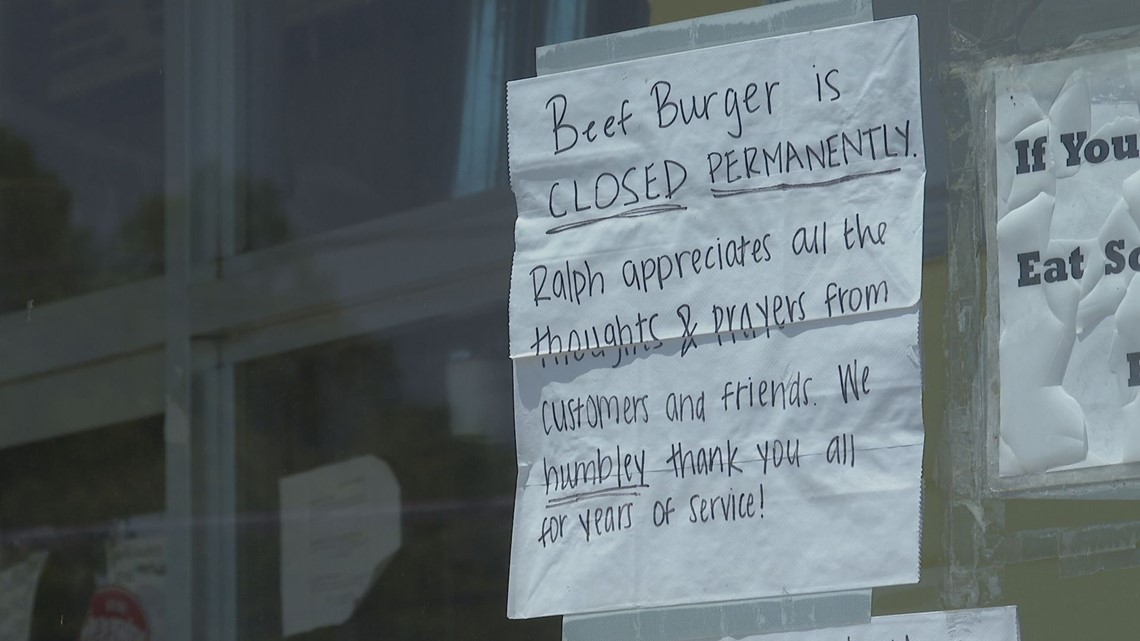 Beef Burger is
CLOSED PERMANENTLY.
Ralph appreciates all the
thoughts & prayers from
customers and friends. We
humbley thank you all
for years of service!
If You
Eat